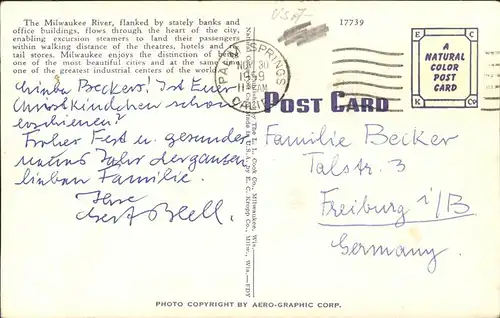 The Milwaukee River, flanked by stately banks and
office buildings, flows through the heart of the city,
enabling excursion steamers to land their passengers
within walking distance of the theatres, hotels and
tail stores. Milwaukee enjoys the distinction of bein
one of the most beautiful cities and at the same
one of the greatest industrial centers of the world
USA
17739
PALM SPRINGS
NOV 30
1959
AM
CALIF.
E C
A
NATURAL
COLOR
POST
CARD
K Co
POST CARD
Beckers! Ist Euer
Christkindchen schon
erschienen?
Froher Fest u. gesundes
Jahr der ganzen
lieben Familie.
Ihre
Familie Becker
Talstr. 3
Freiburg i/B
Germany.
by The E. L. Cook Co., Milwaukee, Wis.
in U.S.A. by E. C. Kropp Co., Milw., Wis.—FDY
PHOTO COPYRIGHT BY AERO-GRAPHIC CORP.